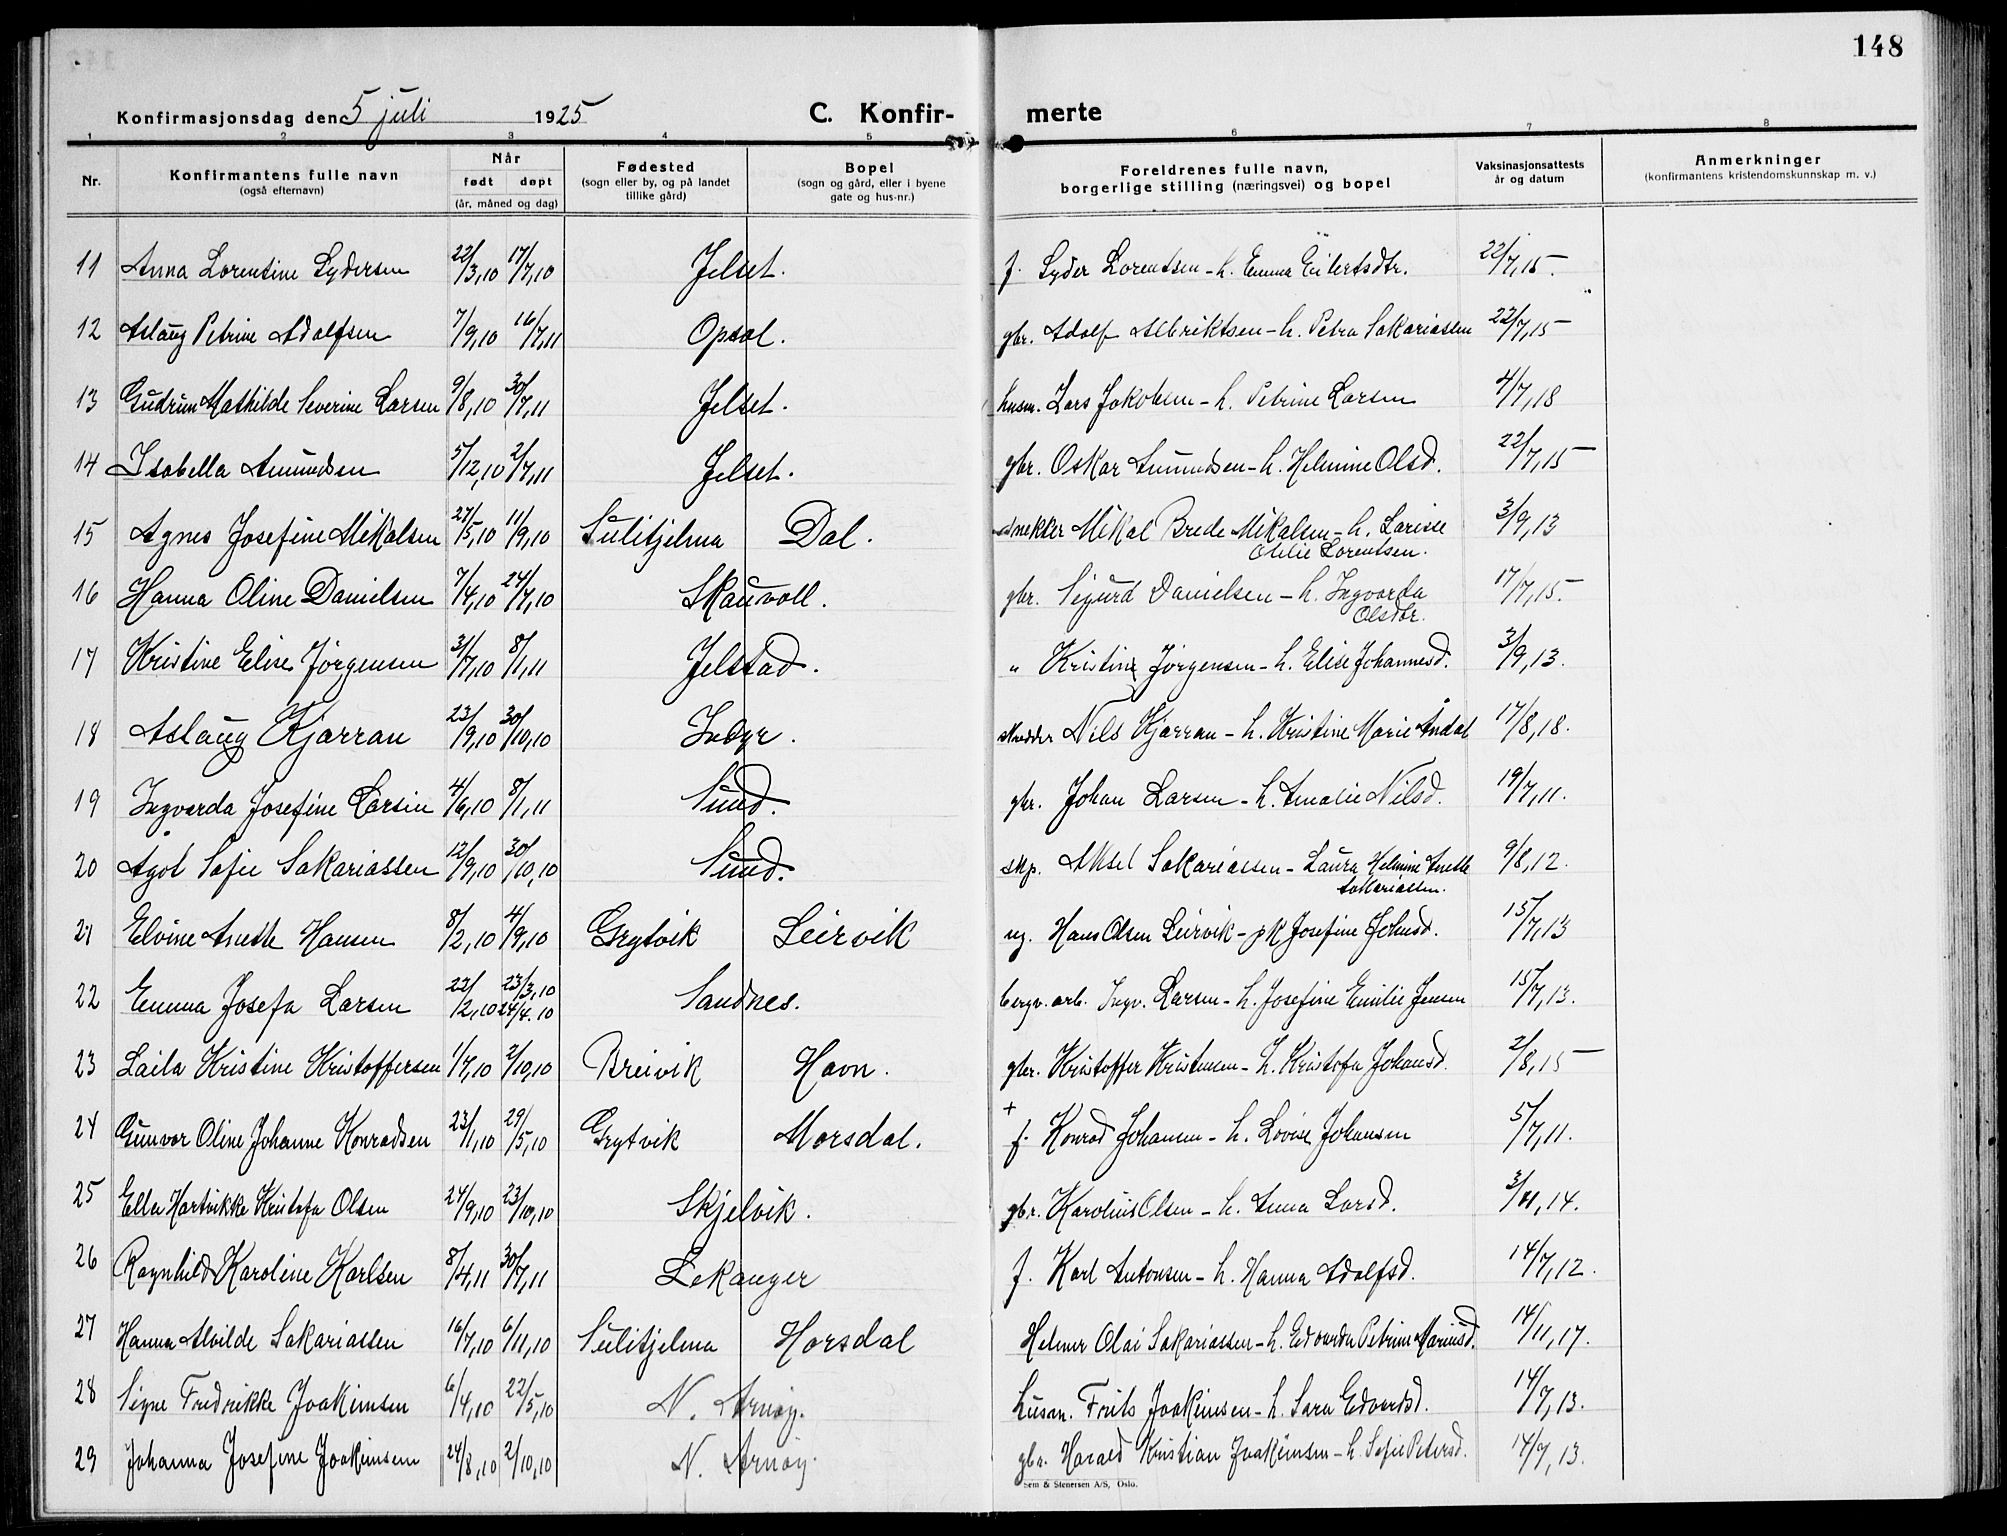 148
Konfirmasjonsdag den 5 juli 1925 C. Konfirmerte
1 2 3 4 5 6 7 8
Nr. Konfirmantens fulle navn (også efternavn) Når født døpt (år, måned og dag) Fødested (sogn eller by, og på landet tillike gård) Bopel (sogn og gård, eller i byene gate og hus-nr.) Foreldrenes fulle navn, borgerlige stilling (næringsvei) og bopel Vaksinasjonsattests år og datum Anmerkninger (konfirmantens kristendomskunnskap m. v.)
11 Anna Lorentine Lydersen 22/3,10 17/7,10 Jelset. f. Lyder Lorentsen - h. Emma Eilertsdtr. 22/7,15.
12 Aslaug Petrine Adolfsen 7/9,10 16/7,11 Opsal. gbr. Adolf Albriktsen - h. Petra Sakariassen 22/7,15
13 Gudrun Mathilde Severine Larsen 9/8,10 30/7,11 Jelset. husm. Lars Jakobsen - h. Petrine Larsen 4/7,18
14 Isabella Amundsen 5/12,10 2/7,11 Jelset. gbr. Oskar Amundsen - h. Helmine Olsd. 22/7,15
15 Agnes Josefine Mikalsen 27/5,10 11/9,10 Sulitjelma Dal. snekker Mikal Brede Mikalsen - h. Larisse
Otelie Lorentsen. 3/9,13
16 Hanna Oline Danielsen 7/4,10 24/7,10 Skauvoll. gbr. Sigurd Danielsen - h. Ingvarda
Olsdtr. 17/7,15.
17 Kristine Elise Jørgensen 31/7,10 8/1,11 Jelstad. " Kristine Jørgensen - h. Elise Johannesd. 3/9,13.
18 Aslaug Kjarran 23/9,10 30/10,10 Indyr. skredder Nils Kjarran - h. Kristine Marie Åndal 17/8,18.
19 Ingvarda Josefine Larsen 4/6,10 8/1,11 Sund. gbr. Johan Larsen - h. Amalie Nilsd. 19/7,11.
20 Ågot Sofie Sakariassen 12/9,10 30/10,10 Sund. skp. Aksel Sakariassen - Laura Helmine Anette
Sakariassen. 9/8,12.
21 Elvine Anette Hansen 8/2,10 4/9,10 Grytvik Leirvik ug. Hans Olsen Leirvik - pk Josefine Johnsd. 15/7,13
22 Emma Josefa Larsen 22/2,10 23/3,10 24/4.10 Sandnes. bergv. arb. Ingv. Larsen - h. Josefine Emilie Jensen 15/7,13.
23 Laila Kristine Kristoffersen 1/7,10 2/10,10 Breivik Havn. gbr. Kristoffer Kristensen - h. Kristofa Johansd. 2/8,15
24 Gunvor Oline Johanne Konradsen 23/1,10 29/5,10 Grytvik Morsdal. + f. Konrad Johansen - h. Lovise Johansen 5/7,11.
25 Ella Hartvikke Kristofa Olsen 24/9,10 23/10,10 Skjelvik. gbr. Karolius Olsen - h. Anna Larsd. 3/11,14.
26 Ragnhild Karoline Karlsen 8/4,11 30/7,11 Lekanger f. Karl Antonsen - h. Hanna Adolfsd. 14/7,12.
27 Hanna Alvilde Sakariassen 16/7,10 6/11,10 Sulitjelma Horsdal Helmer Olai Sakariassen - h. Edvarda Petrine Mariusd. 14/11,17.
28 Signe Fredrikke Joakimsen 6/4,10 22/5,10 N. Arnøy. husm. Frits Joakimsen - h. Sara Edvardsd. 14/7,13.
29 Johanna Josefine Joakimsen 24/8,10 2/10,10 N. Arnøy. gbr. Harald Kristian Joakimsen - h. Sofie Petersd. 14/7,13.
Sem & Stenersen A/S, Oslo.